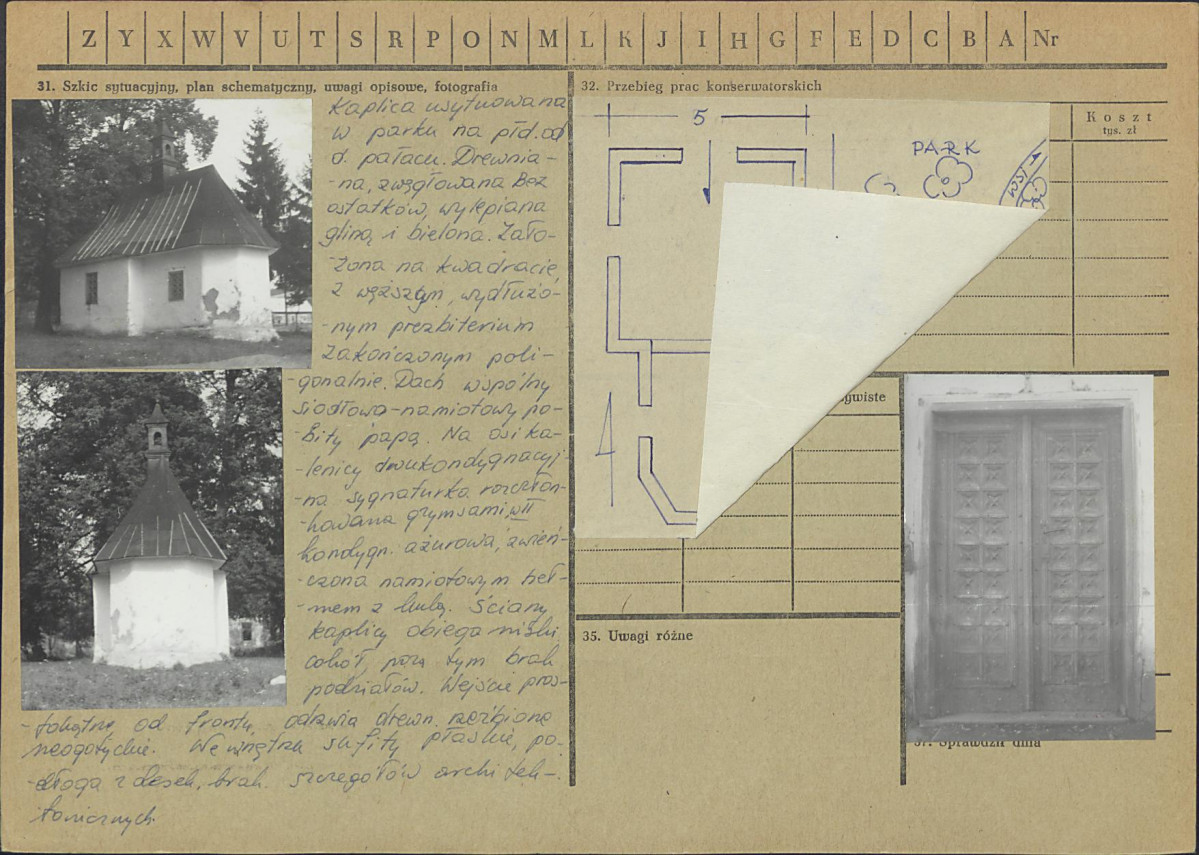 Z Y X W V U T S R P O N M L K J I H G F E D C B A Nr
31. Szkic sytuacyjny, plan schematyczny, uwagi opisowe, fotografia
Kaplica usytuowana
w parku na płd. od
d. pałacu. Drewnia-
-na, zwęgłowana bez
ostatków, wylepiana
gliną i bielona. Zało-
-żona na kwadracie,
z węższym, wydłużo-
-nym prezbiterium
zakończonym poli-
-gonalnie. Dach wspólny
siodłowo-namiotowy po-
-bity papą. Na osi ka-
-lenicy dwukondygnacyj-
-na sygnaturka rozczłon-
-kowana gzymsami, w II
kondygn. ażurowa, zwień-
-czona namiotowym heł-
-mem z kulą. Ściany
kaplicy obiega niski
cokół, poza tym brak
podziałów. Wejście pros-
-tokątne od frontu, odrzwia drewn. rzeźbione
neogotyckie. Wewnątrz sufity płaskie, po-
-dłoga z desek, brak szczegółów architek-
-tonicznych.
32. Przebieg prac konserwatorskich
Koszt
tys. zł
5
PARK
WSI
ywiste
35. Uwagi różne
37. Sprawdził dnia